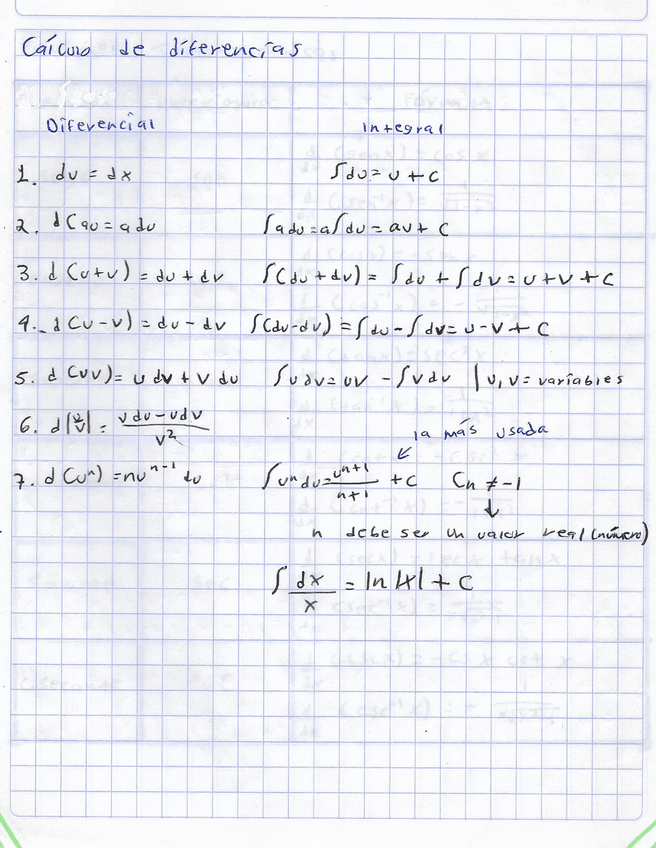 Cálculo de diferencias
Diferencial Integral
1. du = dx ∫du = u + c
2. d(au = a du ∫a du = a∫du = au + c
3. d(u+v) = du + dv ∫(du + dv) = ∫du + ∫dv = u + v + c
4. d(u-v) = du - dv ∫(du - dv) = ∫du - ∫dv = u - v + c
5. d(uv) = u dv + v du ∫u dv = uv - ∫v du | u, v = variables
6. d|u/v| = (v du - u dv)/v²
la más usada
7. d(uⁿ) = nuⁿ⁻¹ du ∫uⁿ du = uⁿ⁺¹/(n+1) + c Cn ≠ -1
n debe ser un valor real (número)
∫ dx/x = ln |x| + c